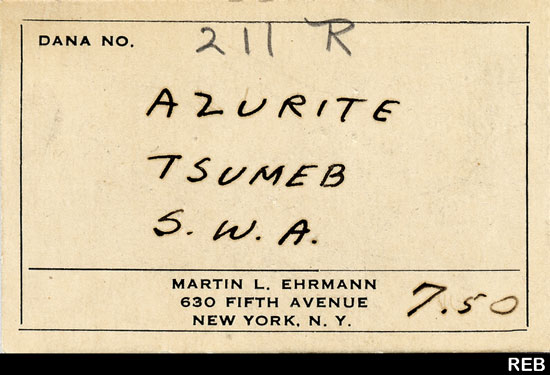 DANA NO. 211 R
AZURITE
TSUMEB
S. W. A.
MARTIN L. EHRMANN
630 FIFTH AVENUE
NEW YORK, N. Y.
7.50
REB